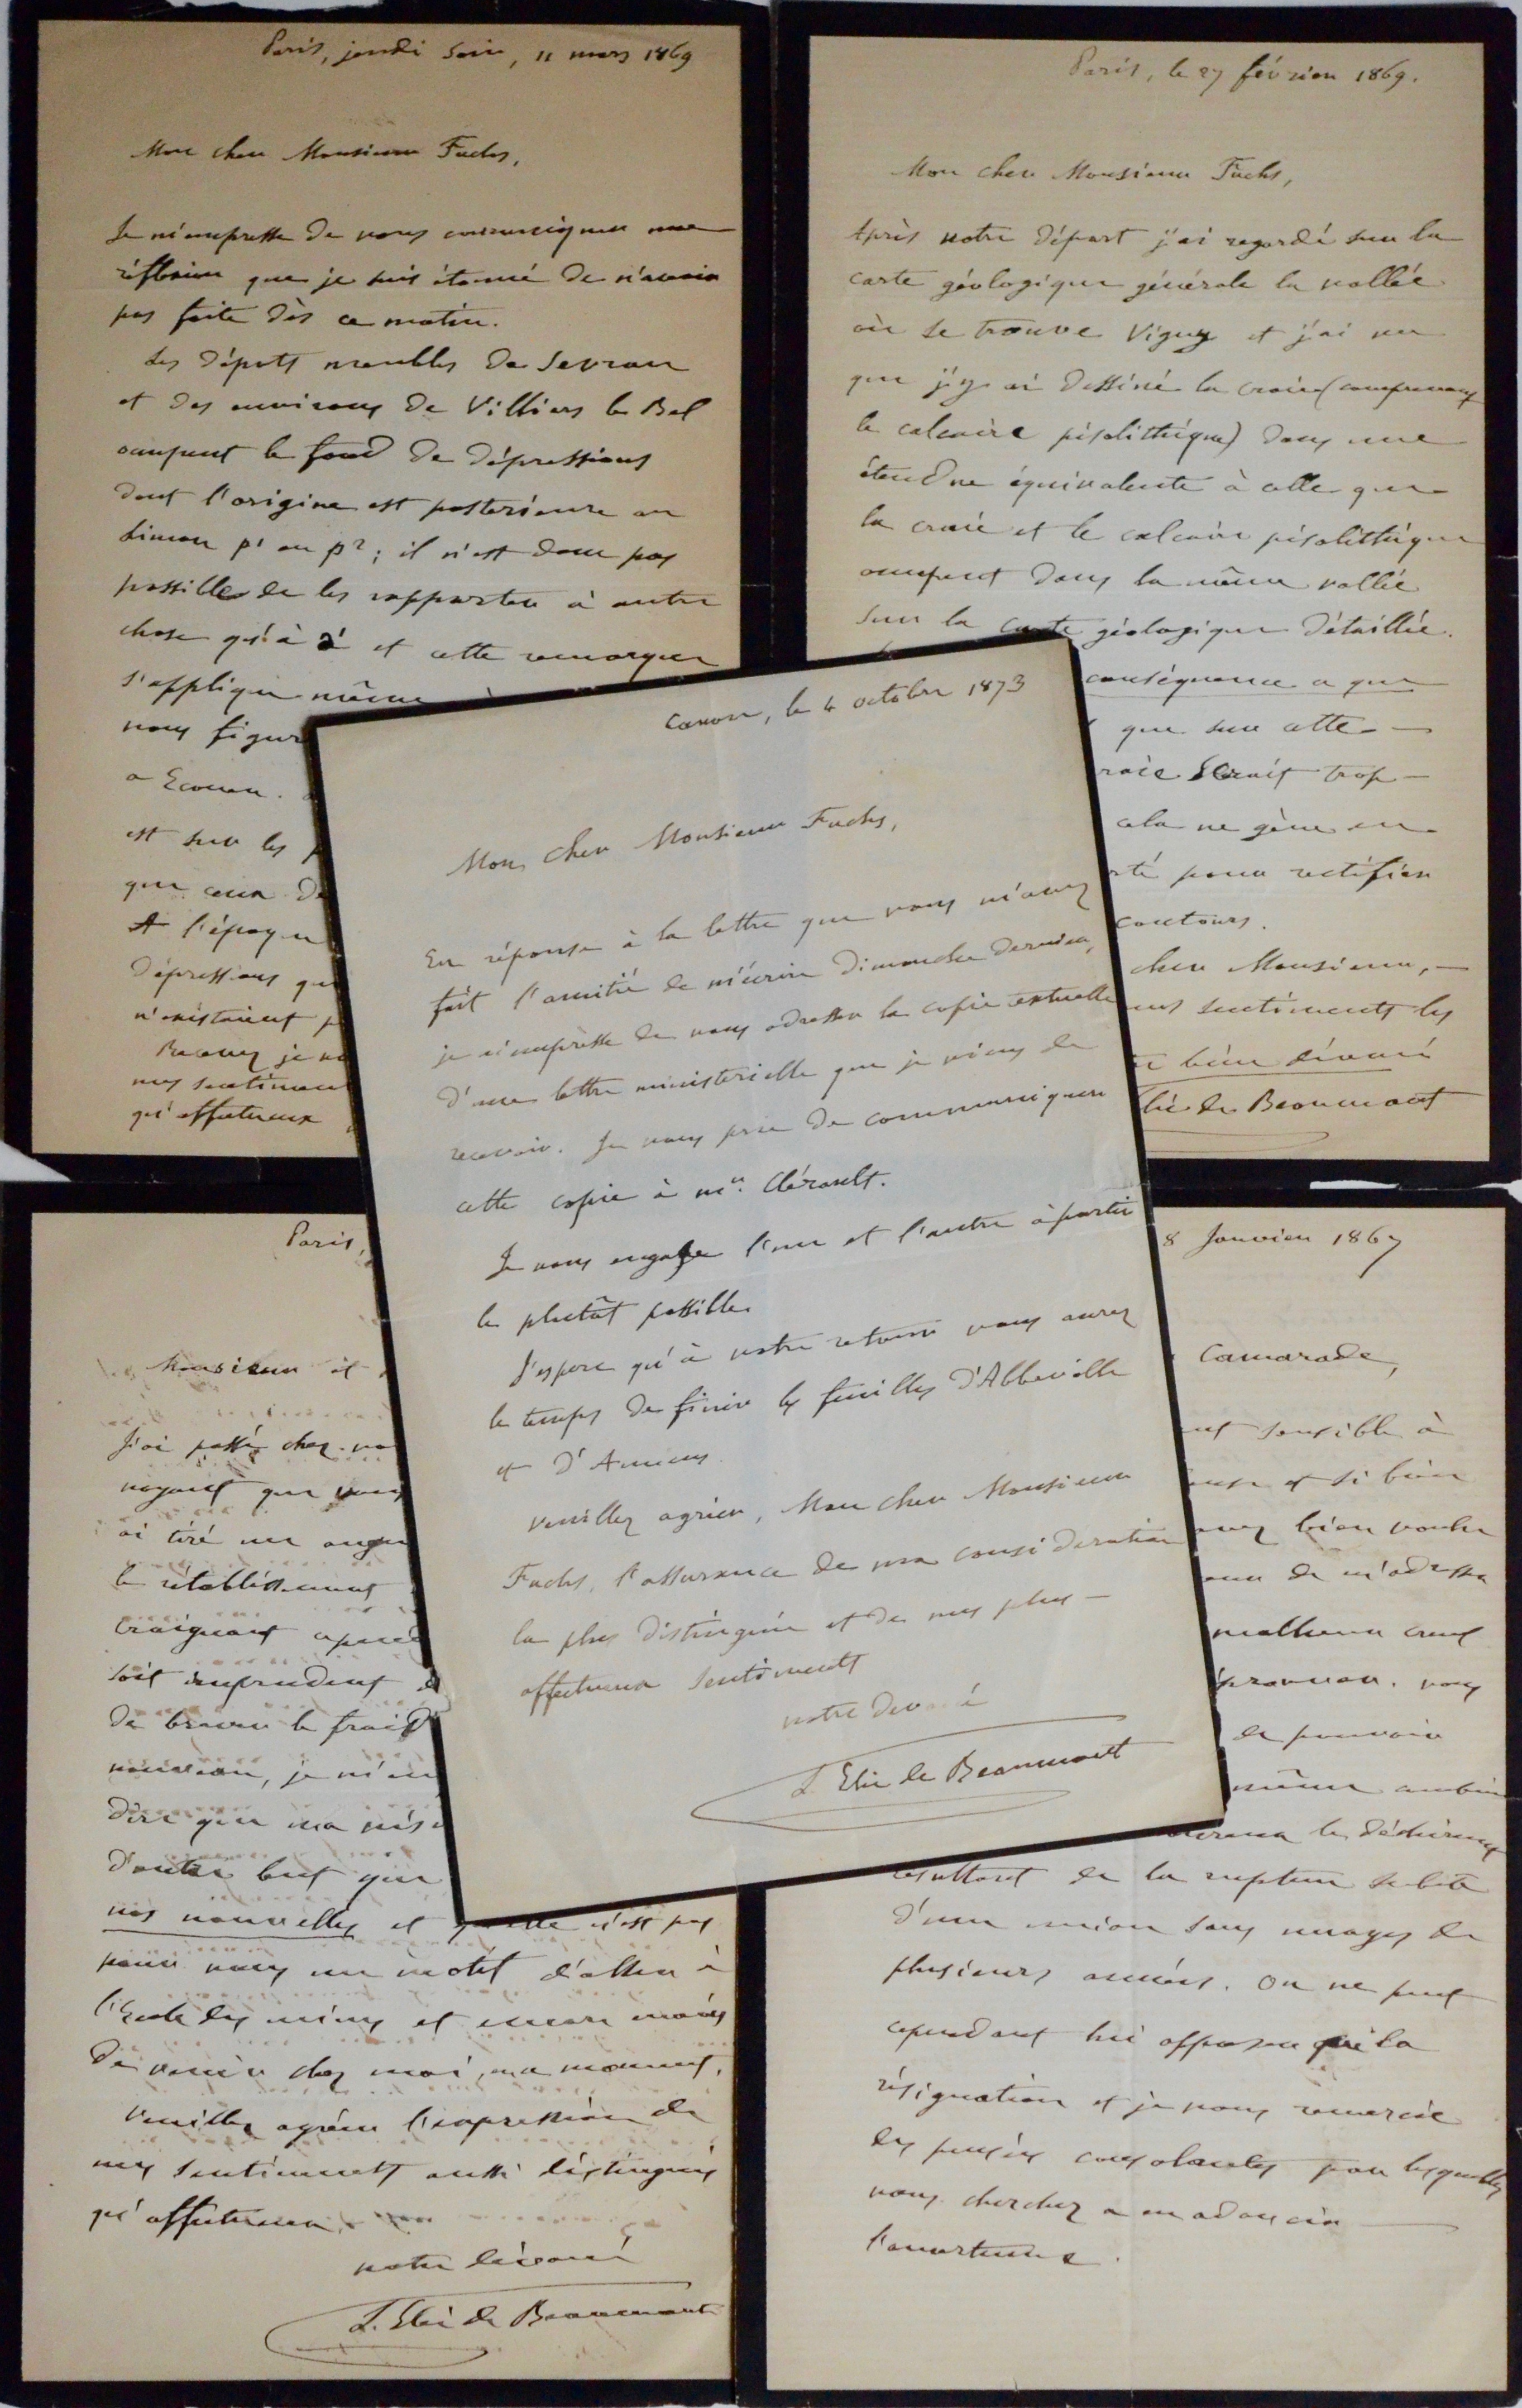 Paris, jeudi soir, 11 mars 1869
Mon cher Monsieur Fuchs,
Je m'empresse de vous communiquer une
réflexion que je suis étonné de n'avoir
pas faite dès ce matin.
Les dépots meubles de Sevran
et des environs de Villiers le Bel
occupent le fond de dépressions
dont l'origine est posterieure au
limon p1 ou p2; il n'est donc pas
possible de les rapporter à autre
chose qu'à a et cette remarque
s'applique même
nous figur
a Ecouen.
est sur les
que ceux de
A l'époque
dépressions qu
n'existaient p
Recevez je v
mes sentiment
qu'affectueux
Paris, le 27 février 1869.
Mon cher Monsieur Fuchs,
Après votre départ j'ai regardé sur la
carte géologique générale la vallée
où se trouve Vigny et j'ai vu
que j'y ai dessiné la craie (comprenant
le calcaire pisolithique) dans une
étendue équivalente à celle que
la craie et le calcaire pisolithique
occupent dans la même vallée
sur la carte géologique détaillée.
conséquence a que
que sur cette
raie serait trop
cela ne gène en
rté pour rectifier
contours.
cher Monsieur,
mes sentiments les
bien dévoué
Elie de Beaumont
Canon, le 4 octobre 1873
Mon cher Monsieur Fuchs,
En réponse à la lettre que vous m'avez
fait l'amitié de m'écrire Dimanche dernier,
je m'empresse de vous adresser la copie textuelle
d'une lettre ministerielle que je viens de
recevoir. Je vous prie de communiquer
cette copie à mr. Clérault.
Je vous engage l'un et l'autre à partir
le plutôt possible.
J'espere qu'à votre retour vous aurez
le temps de finir les feuilles d'Abbeville
et d'Amiens.
Veuillez agréer, Mon cher Monsieur
Fuchs, l'assurance de ma consideration
la plus distinguée et de mes plus
affectueux sentiments
votre devoué
L. Elie de Beaumont
Paris,
Monsieur et
J'ai passé chez vo
voyant que vous
ai tiré un augu
le rétablissement
craignant
soit imprudent
de braver le froid
nouveau, je m'em
dire que ma
d'autre but que
vos nouvelles et qu'elle n'est pas
pour vous un motif d'aller à
l'Ecole des mines et encore moins
de venir chez moi, en ce moment.
Veuillez agréer l'expression de
mes sentiments aussi distingués
qu'affectueux.
votre dévoué
L. Elie de Beaumont
8 Janvier 1867
Camarade,
sensible à
et si bien
avez bien voulu
de m'adresser
malheur cruel
éprouver. vous
de pouvoir
même
le déchirement
résultant de la rupture subite
d'une union sans nuages de
plusieurs années. On ne peut
cependant lui opposer que la
résignation et je vous remercie
des pensées consolantes par lesquelles
vous cherchez a en adoucir
l'amertume.